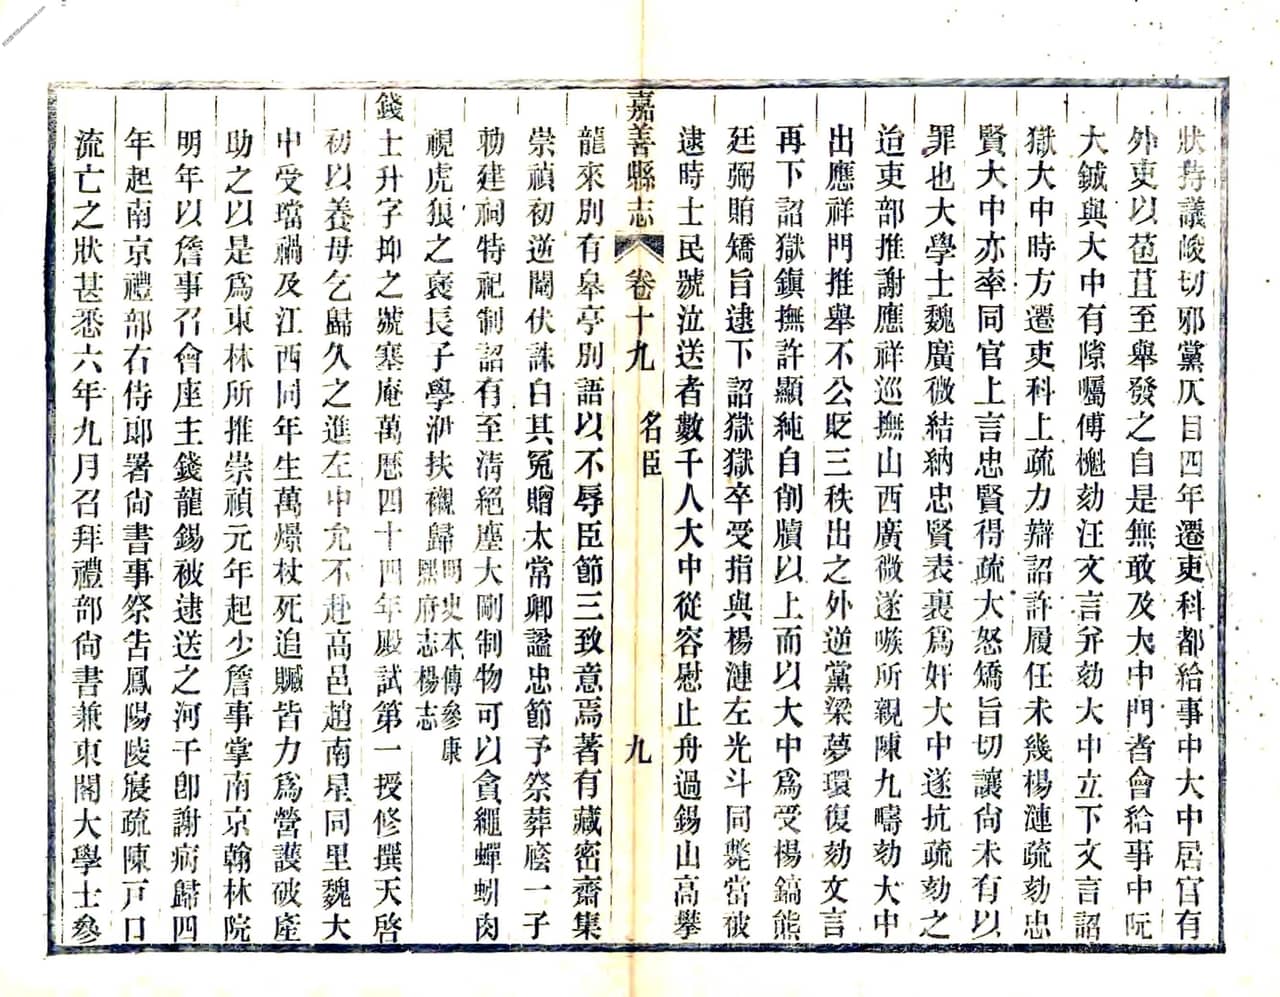 狀持議峻切邪黨仄目四年遷吏科都給事中大中居官有
外吏以苞苴至舉發之自是無敢及大中門者會給事中阮
大鋮與大中有隙囑傅櫆劾汪文言并劾大中立下文言詔
獄大中時方遷吏科上疏力辯詔許履任未幾楊漣疏劾忠
賢大中亦率同官上言忠賢得疏大怒矯旨切讓尙未有以
罪也大學士魏廣微結納忠賢表裏爲奸大中遂抗疏劾之
迨吏部推謝應祥巡撫山西廣微遂嗾所親陳九疇劾大中
出應祥門推舉不公貶三秩出之外逆黨梁夢環復劾文言
再下詔獄鎭撫許顯純自削牘以上而以大中爲受楊鎬熊
廷弼賄矯旨逮下詔獄獄卒受指與楊漣左光斗同斃當被
逮時士民號泣送者數千人大中從容慰止舟過錫山高攀
嘉善縣志 卷十九 名臣 九
龍來別有皋亭別語以不辱臣節三致意焉著有藏密齋集
崇禎初逆閹伏誅白其冤贈太常卿謚忠節予祭葬廕一子
勅建祠特祀制詔有至淸絕塵大剛制物可以貪繩蟬蚓肉
視虎狼之褒長子學洢扶櫬歸 明史本傳參康熙府志楊志
錢士升字抑之號塞庵萬厯四十四年殿試第一授修撰天啓
初以養母乞歸久之進左中允不赴高邑趙南星同里魏大
中受璫禍及江西同年生萬燝杖死追贓皆力爲營護破產
助之以是爲東林所推崇禎元年起少詹事掌南京翰林院
明年以詹事召會座主錢龍錫被逮送之河干卽謝病歸四
年起南京禮部右侍郎署尙書事祭告鳳陽陵寢疏陳戸口
流亡之狀甚悉六年九月召拜禮部尙書兼東閣大學士參